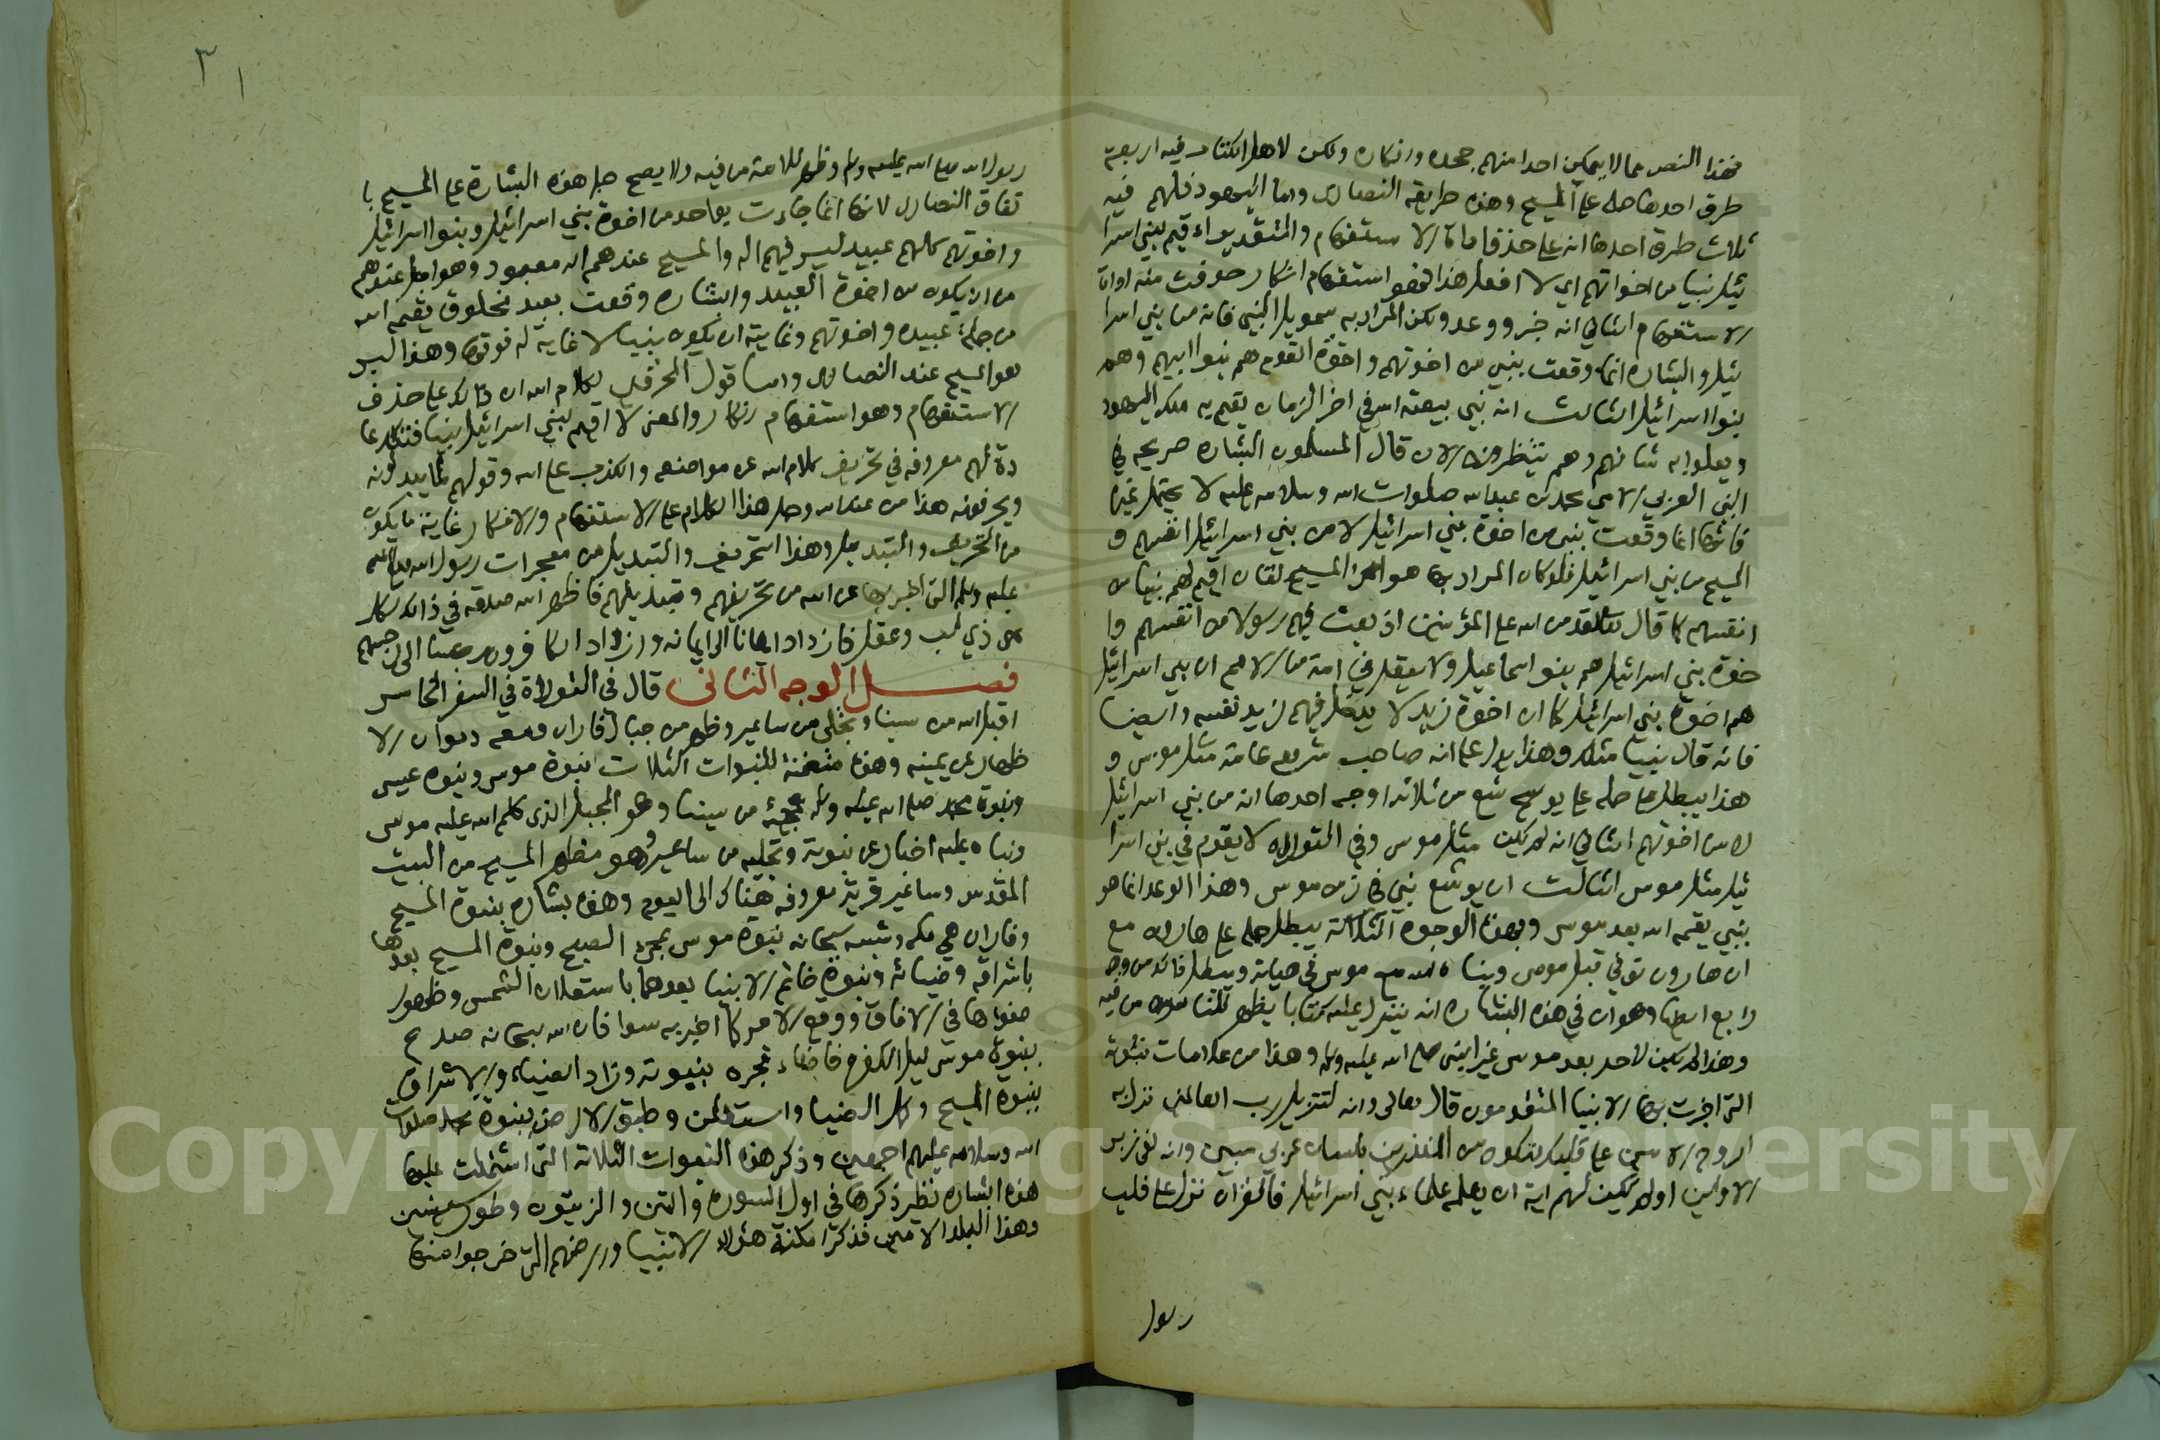 فهذا النص مما لا يمكن احدا منهم جحده وانكاره ولكن لاهل الكتاب فيه اربعة
طرق احدها حمله على المسيح وهذه طريقة النصارى واما اليهود فلهم فيه
ثلاث طرق احدها انه على حذف اداة الاستفهام والتقدير ااقيم لبني اسرا
ئيل نبيا من اخوانهم اي لا افعل هذا فهو استفهام انكار حذفت منه اداة
الاستفهام الثاني انه خبر ووعد ولكن المراد به شمويل النبي فانه من بني اسرا
ئيل والبشارة انما وقعت بنبي من اخوتهم واخوة القوم هم بنوا ابيهم وهم
بنوا اسرائيل الثالث انه نبي يبعثه الله في اخر الزمان يقيم به ملك اليهود
ويعلوا به شانهم وهم ينتظرونه الان قال المسلمون البشارة صريحه في
النبي العربي الامي محمد بن عبد الله صلوات الله وسلامه عليه لا يحتمل غيره
فانها انما وقعت بنبي من اخوة بني اسرائيل لا من بني اسرائيل انفسهم و
المسيح من بني اسرائيل فلو كان المراد بها هو المسيح لقال اقيم لهم نبيا من
انفسهم كما قال تعالى لقد من الله على المؤمنين اذ بعث فيهم رسولا من انفسهم وا
خوة بني اسرائيل هم بنو اسماعيل ولا يعقل في امة من الامم ان بني اسرائيل
هم اخوة بني اسرائيل كما ان اخوة زيد لا يدخل فيهم زيد نفسه وايضا
فانه قال نبيا مثلك وهذا يدل على انه صاحب شريعه عامة مثل موسى و
هذا يبطل حمله على يوشع من ثلاثة اوجه احدها انه من بني اسرائيل
لا من اخوتهم الثاني انه لم يكن مثل موسى وفي التوراة لا يقوم في بني اسرا
ئيل مثل موسى الثالث ان يوشع نبي في زمن موسى وهذا الوعد انما هو
بنبي يقيمه الله بعد موسى وبهذه الوجوه الثلاثة يبطل حمله على هارون مع
ان هارون توفي قبل موسى ونباه الله مع موسى في حياته ويبطل ذلك من وجه
رابع ايضا وهو ان في هذه البشارة انه ينزل عليه كتابا يظهر للناس من فيه
وهذا لم يكن لاحد بعد موسى غير النبي صلى الله عليه وسلم وهذا من علامات نبوته
التي اخبرت بها الانبيا المتقدمون قال تعالى وانه لتنزيل رب العالمين نزل به
الروح الامين على قلبك لتكون من المنذرين بلسان عربي مبين وانه لفي زبر
الاولين اولم يكن لهم اية ان يعلمه علماء بني اسرائيل فالقران نزل على قلب
رسول
٣١
رسول الله صلى الله عليه وسلم وظهر للامة من فيه ولا يصح حمل هذه البشارة على المسيح با
تفاق النصارى لانها انما جاءت بواحد من اخوة بني اسرائيل وبنوا اسرائيل
واخوتهم كلهم عبيد ليس فيهم اله والمسيح عندهم اله معبود وهو اجل عندهم
من ان يكون من اخوة العبيد والبشاره وقعت بعبد مخلوق يقيمه الله
من جملة عبيده واخوتهم وغايته ان يكون نبيا لا غاية له فوقها وهذا ليس
هو المسيح عند النصارى واما قول المحرفين لكلام الله ان ذلك على حذف
الاستفهام وهو استفهام انكار والمعنى لا اقيم لبني اسرائيل نبيا فتلك عا
دة لهم معروفه في تحريف كلام الله عن مواضعه والكذب على الله وقولهم لما يبدلونه
ويحرفونه هذا من عند الله وحمل هذا الكلام على الاستفهام والانكار غاية ما يكون
من التحريف والتبديل وهذا التحريف والتبديل من معجزات رسول الله صلى الله
عليه وسلم التي اخبر بها عن الله من تحريفهم وتبديلهم فاظهر الله صدقه في ذلك لكل
ذي لب وعقل فازداد ايمانا الى ايمانه وازداد الكافرون رجسا الى رجسهم
فصل الوجه الثاني قال في التوراة في السفر الخامس
اقبل الله من سينا وتجلى من ساعير وظهر من جبال فاران ومعه ربوات الا
ظهار عن يمينه وهذه متضمنة للنبوات الثلاث نبوة موسى ونبوة عيسى
ونبوة محمد صلى الله عليه وسلم فمجيئه من سينا وهو الجبل الذي كلم الله عليه موسى
ونباه عليه اخبار عن نبوته وتجليه من ساعير هو مظهر المسيح من البيت
المقدس وساعير قرية معروفه هناك الى اليوم وهذه بشارة بنبوة المسيح
وفاران هي مكه وشبه سبحانه نبوة موسى بمجيء الصبح ونبوة المسيح بعدها
باشراقه وضيائه ونبوة خاتم الانبيا بعدهما باستعلاء الشمس وظهور
ضوءها في الافاق ووقع الامر كما اخبر به سوا فان الله سبحانه صدع
بنبوة موسى ليل الكفر فاضاء فجره بنبوته وزاد الضياء والاشراق
بنبوة المسيح وكمل الضيا واستعلن وطبق الارض بنبوة محمد صلوات
الله وسلامه عليهم اجمعين وذكر هذه النبوات الثلاثة التي اشتملت عليها
هذه البشارة نظير ذكرها في اول السورة والتين والزيتون وطور سينين
وهذا البلد الامين فذكر امكنة هؤلاء الانبيا وارضهم التي خرجوا منها
Copyright © King Saud University